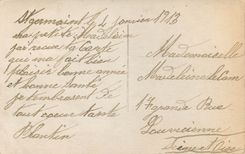 St germain le 4 janvier 1913
ma petite Madeleine
j'ai reçue ta carte
que ma fait bien
plaisir bonne année
et bonne santé
je t'embrasse de
tout cœur tante
Mademoiselle
Madeleine
1 grande Rue
Louvecienne
Seine et Oise